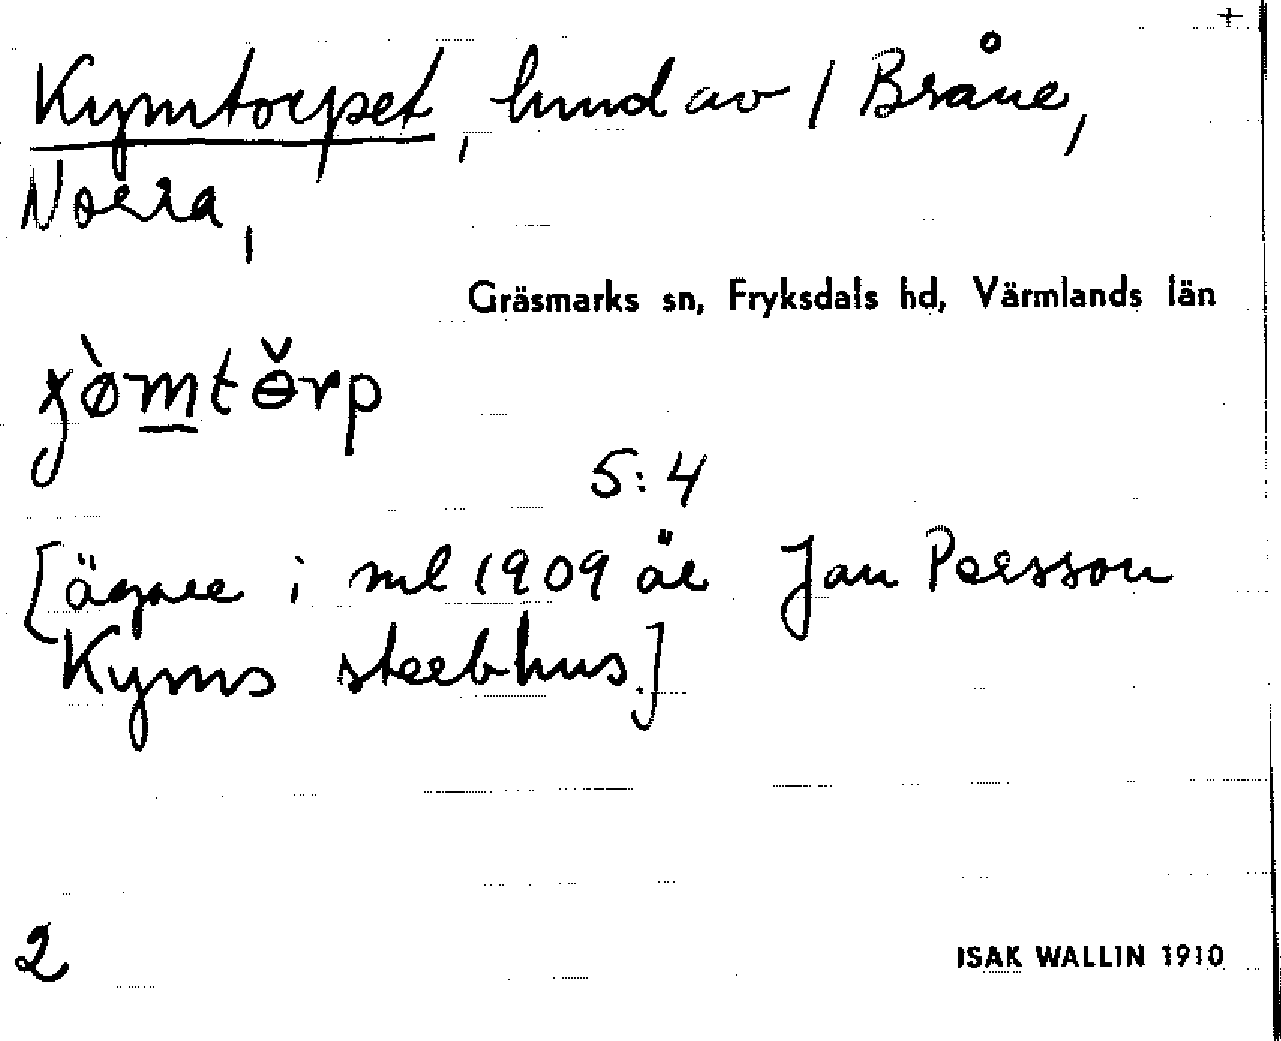 +
Kymtorpet, hmd av / Bråne,
Norra,
Gräsmarks sn, Fryksdals hd, Värmlands län
5:4
[ägare i ml 1909 är Jan Persson
Kyms sterbhus]
2
ISAK WALLIN 1910